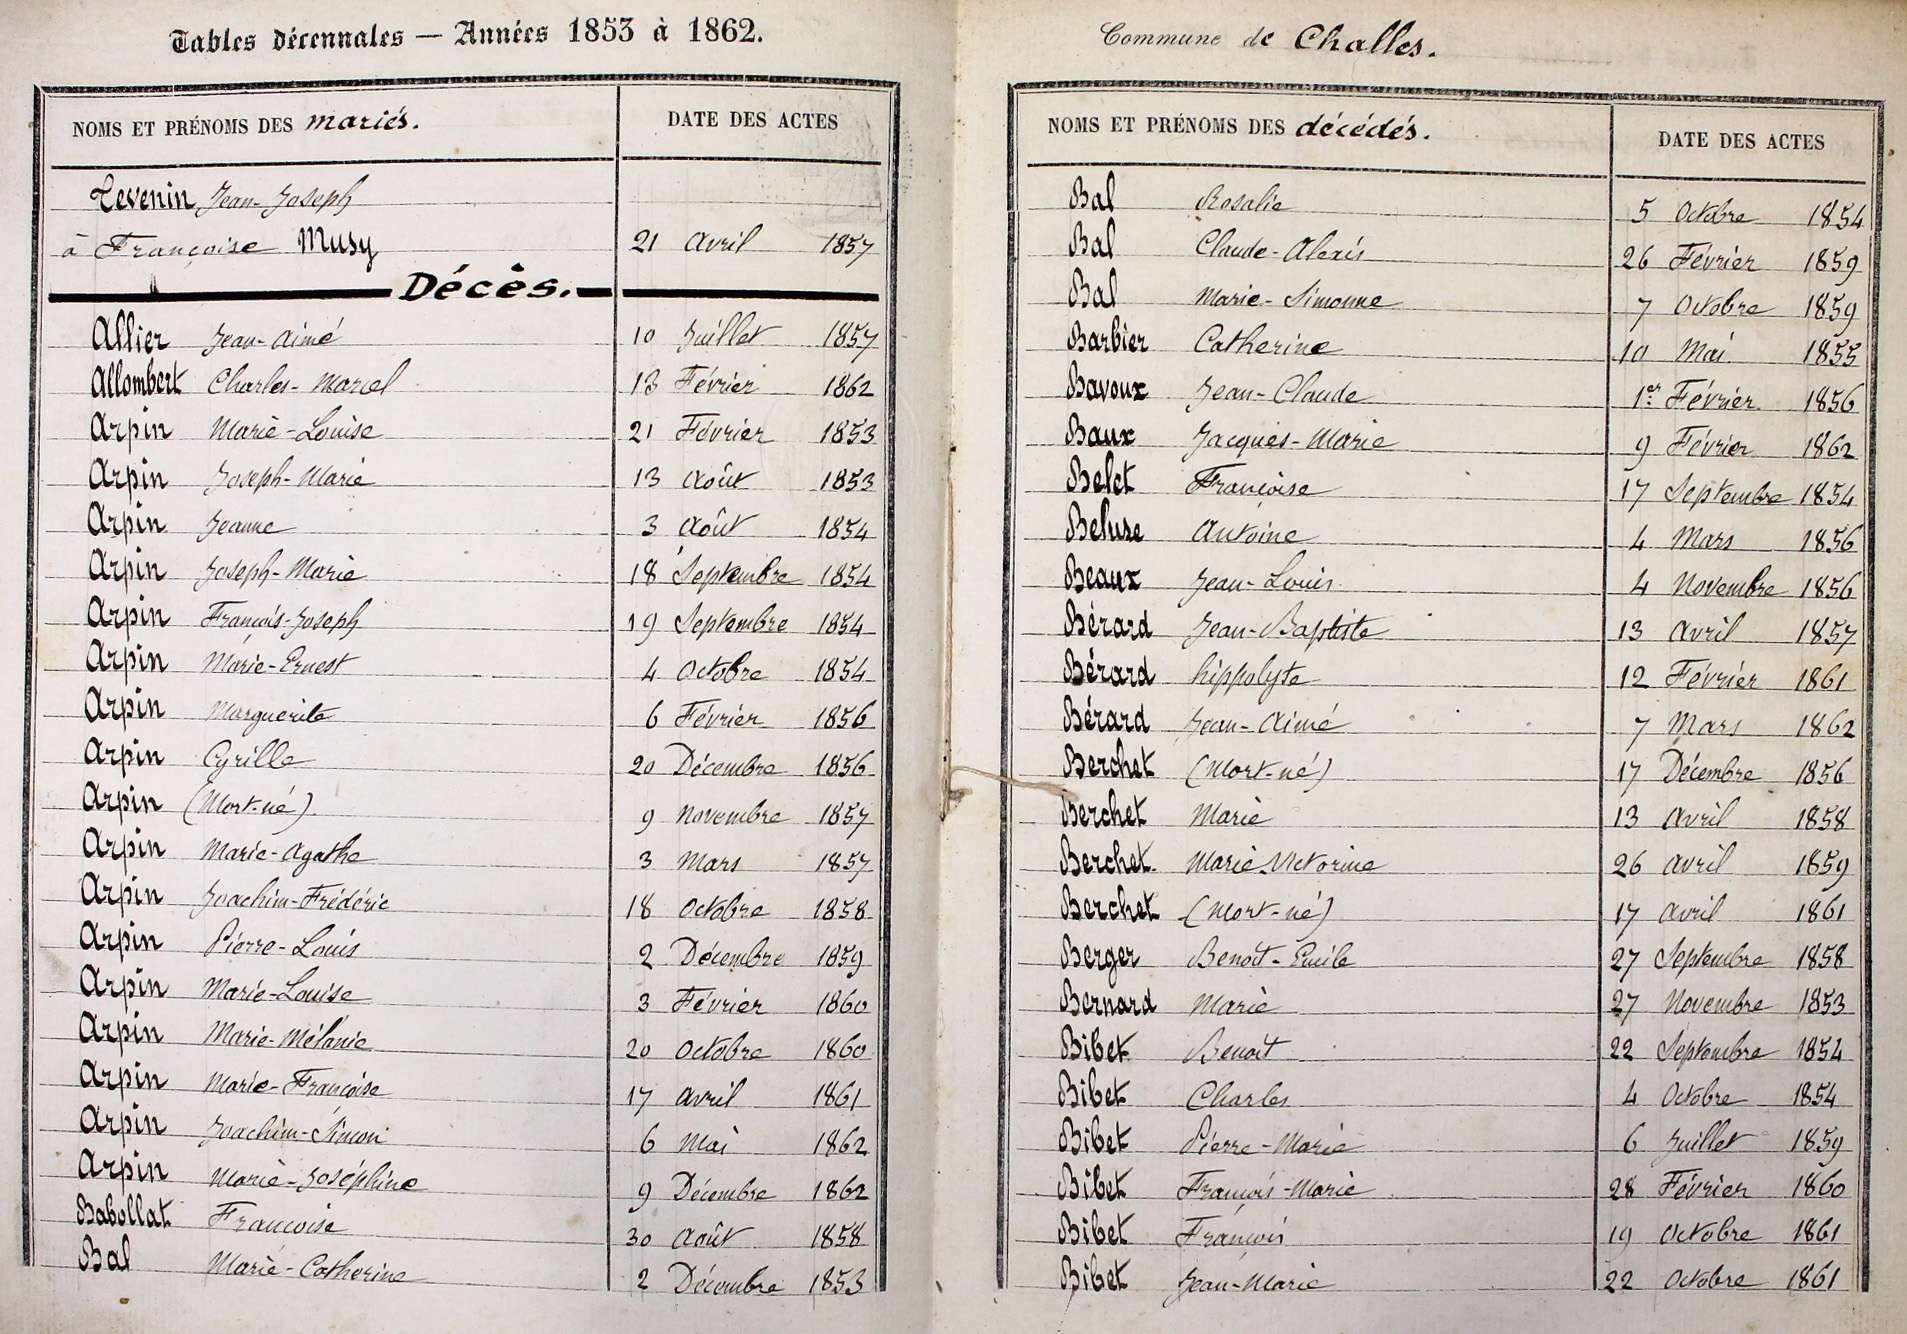 Tables décennales — Années 1853 à 1862.
NOMS ET PRÉNOMS DES mariés. DATE DES ACTES
Tevenin Jean-Joseph
à Françoise Musy 21 Avril 1857
Décès.
Allier Jean-Aimé 10 Juillet 1857
Allombert Charles-Marcel 13 Février 1862
Arpin Marie-Louise 21 Février 1853
Arpin Joseph-Marie 13 Août 1853
Arpin Jeanne 3 Août 1854
Arpin Joseph-Marie 18 Septembre 1854
Arpin François-Joseph 19 Septembre 1854
Arpin Marie-Ernest 4 Octobre 1854
Arpin Marguerite 6 Février 1856
Arpin Cyrille 20 Décembre 1856
Arpin (Mort-né) 9 Novembre 1857
Arpin Marie-Agathe 3 Mars 1857
Arpin Joachim-Frédéric 18 Octobre 1858
Arpin Pierre-Louis 2 Décembre 1859
Arpin Marie-Louise 3 Février 1860
Arpin Marie-Mélanie 20 Octobre 1860
Arpin Marie-Françoise 17 Avril 1861
Arpin Joachim-Simon 6 Mai 1862
Arpin Marie-Joséphine 9 Décembre 1862
Babollat Françoise 30 Août 1858
Bal Marie-Catherine 2 Décembre 1853
Commune de Challes.
NOMS ET PRÉNOMS DES décédés. DATE DES ACTES
Bal Rosalie 5 Octobre 1854
Bal Claude-Alexis 26 Février 1859
Bal Marie-Simonne 7 Octobre 1859
Barbier Catherine 10 Mai 1855
Bavoux Jean-Claude 1er Février 1856
Baux Jacques-Marie 9 Février 1862
Belet Françoise 17 Septembre 1854
Beluse Antoine 4 Mars 1856
Beaux Jean-Louis 4 Novembre 1856
Bérard Jean-Baptiste 13 Avril 1857
Bérard hippolyte 12 Février 1861
Bérard Jean-Aimé 7 Mars 1862
Berchet (Mort-né) 17 Décembre 1856
Berchet Marie 13 Avril 1858
Berchet Marie-Victorine 26 Avril 1859
Berchet (Mort-né) 17 Avril 1861
Berger Benoit-Emile 27 Septembre 1858
Bernard Marie 27 Novembre 1853
Bibet Benoit 22 Septembre 1854
Bibet Charles 4 Octobre 1854
Bibet Pierre-Marie 6 Juillet 1859
Bibet François-Marie 28 Février 1860
Bibet François 19 Octobre 1861
Bibet Jean-Marie 22 Octobre 1861